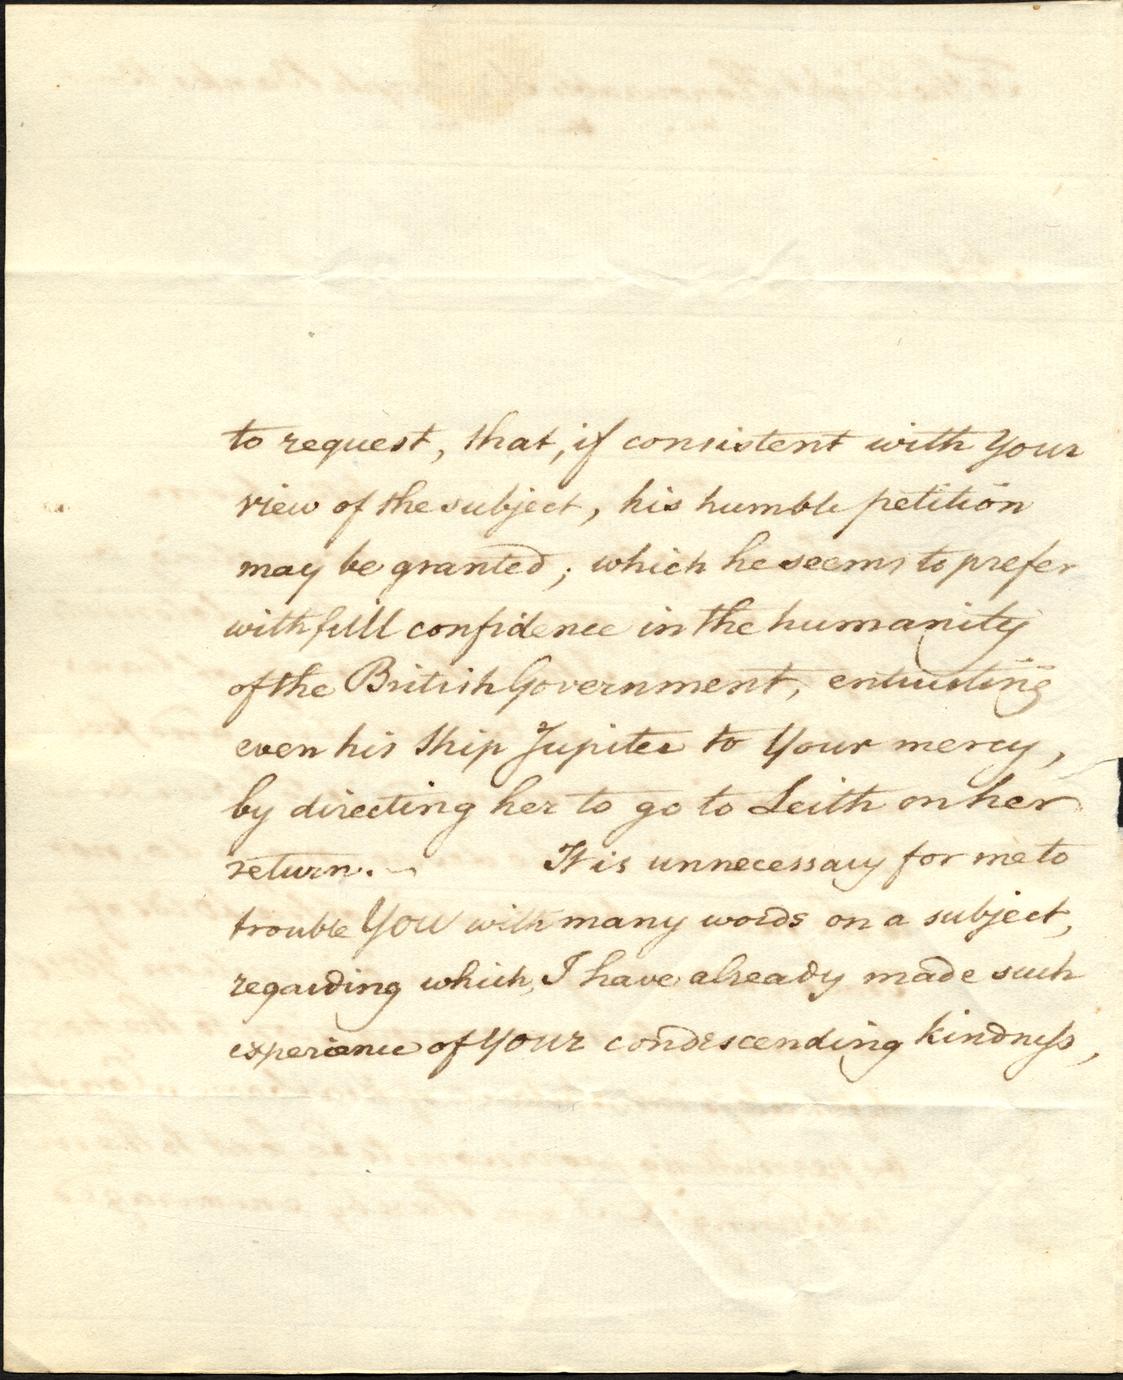 to request, that, if consistent with Your
view of the subject, his humble petition
may be granted; which he seems to prefer
with full confidence in the humanity
of the British Government, entrusting
even his Ship Jupiter to Your mercy,
by directing her to go to Leith on her
return. It is unnecessary for me to
trouble You with many words on a subject,
regarding which, I have already made such
experience of Your condescending kindness,